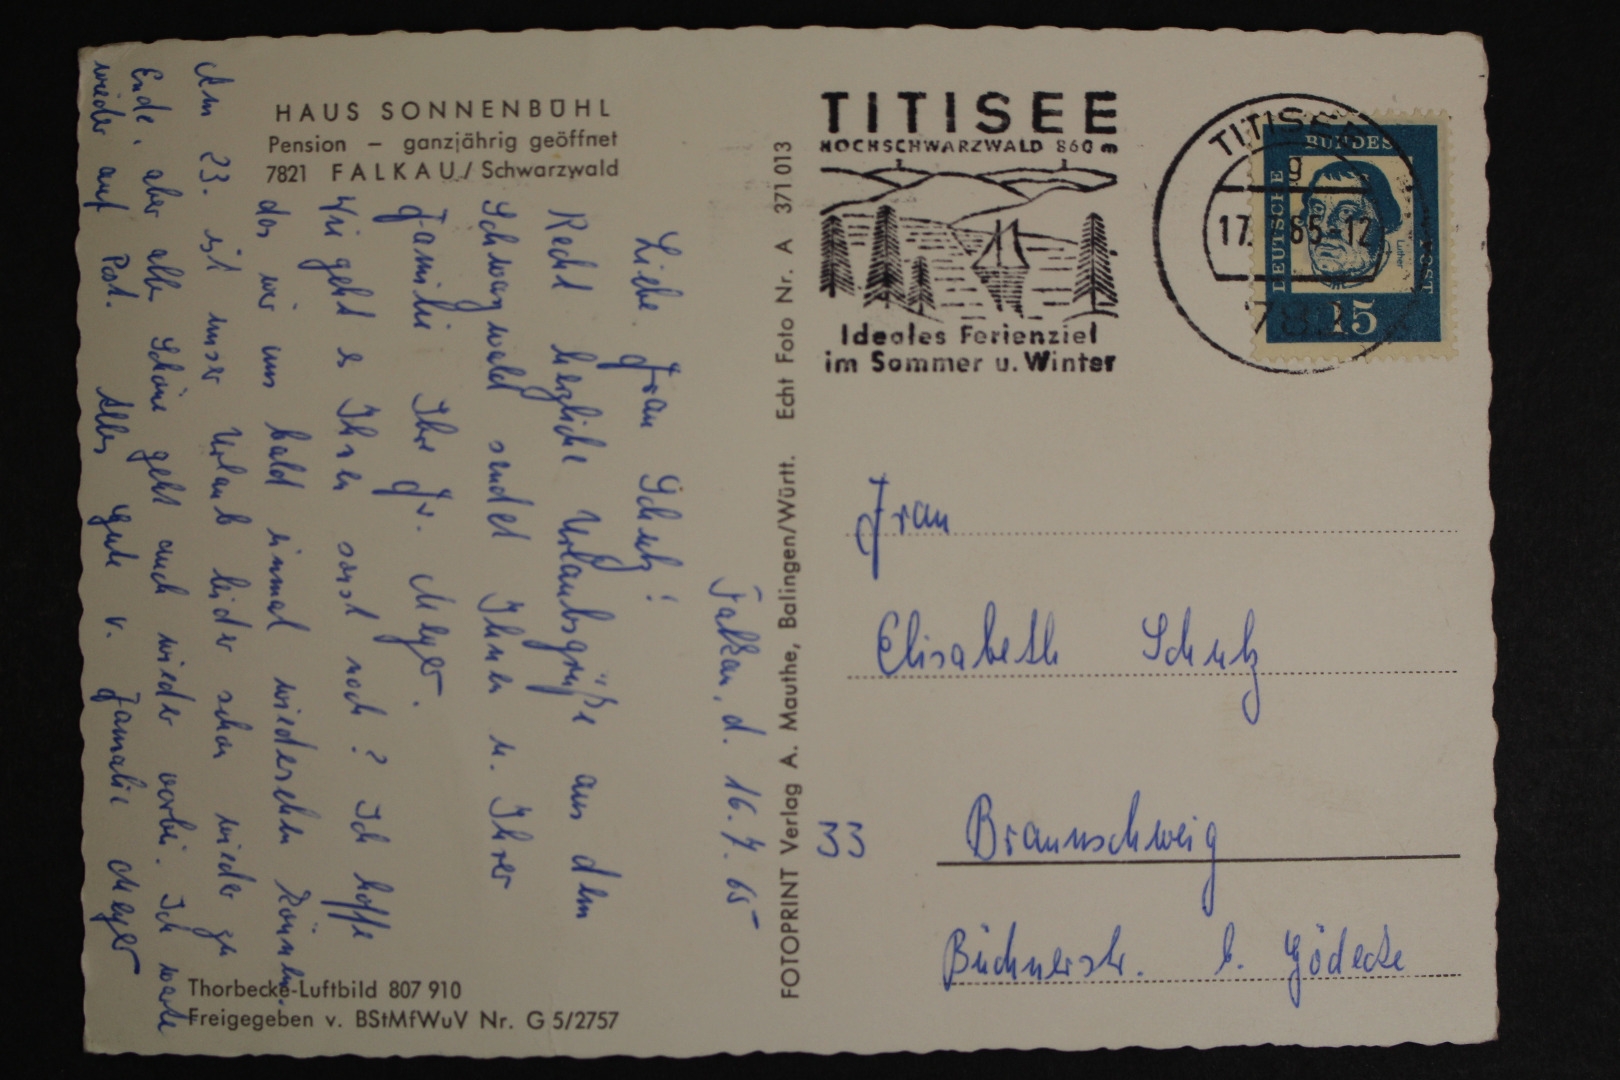 HAUS SONNENBÜHL
Pension – ganzjährig geöffnet
7821 FALKAU / Schwarzwald
Falkau, d. 16.7.65
Liebe Frau Schulz!
Recht herzliche Urlaubsgrüße aus dem
Schwarzwald sendet Ihnen u. Ihrer
Familie Ihre Fr. Meyer.
Wie geht es Ihnen sonst noch? Ich hoffe
das wir uns bald einmal wiedersehen können.
Am 23. ist unser Urlaub leider schon wieder zu
Ende, aber alle Schöne geht auch wieder vorbei. Ich warte
wieder auf Post. Alles Gute v. Familie Meyer
Thorbecke-Luftbild 807 910
Freigegeben v. BStMfWuV Nr. G 5/2757
FOTOPRINT Verlag A. Mauthe, Balingen/Württ. Echt Foto Nr. A 371 013
TITISEE
HOCHSCHWARZWALD 860 m
Ideales Ferienziel
im Sommer u. Winter
TITISEE
g
17. 65-12
DEUTSCHE BUNDESPOST
Luther
15
Frau
Elisabeth Schulz
33 Braunschweig
Büchnerstr. b. Gödecke